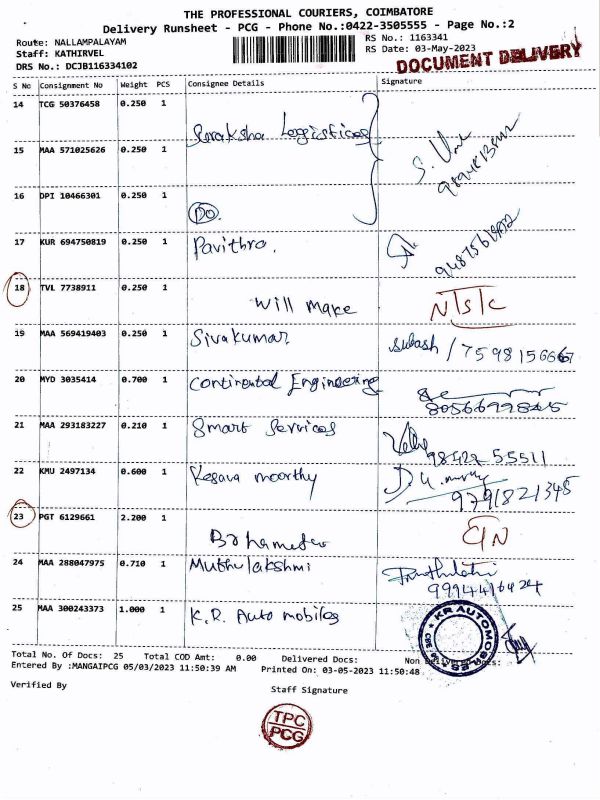 THE PROFESSIONAL COURIERS, COIMBATORE
Delivery Runsheet - PCG - Phone No.:0422-3505555 - Page No.:2
Route: NALLAMPALAYAM
Staff: KATHIRVEL
DRS No.: DCJB116334102
RS No.: 1163341
RS Date: 03-May-2023
DOCUMENT DELIVERY
S No Consignment No Weight PCS Consignee Details Signature
14 TCG 50376458 0.250 1
Suraksha Logistics
15 MAA 571025626 0.250 1
16 DPI 10466301 0.250 1
DO.
17 KUR 694750819 0.250 1 Pavithra.
18 TVL 7738911 0.250 1
Will Make N/S/C
19 MAA 569419403 0.250 1 Sivakumar
subash / 7598156667
20 MYD 3035414 0.700 1 Continental Engineering
21 MAA 293183227 0.210 1 Smart Services
98422 55511
22 KMU 2497134 0.600 1 Kesava moorthy
9791821348
23 PGT 6129661 2.200 1
24 MAA 288047975 0.710 1 Muthulakshmi
9994416424
25 MAA 300243373 1.000 1 K.R. Auto mobiles
KR AUTOMOBILES
Total No. Of Docs: 25 Total COD Amt: 0.00 Delivered Docs: Non Delivered Docs:
Entered By :MANGAIPCG 05/03/2023 11:50:39 AM Printed On: 03-05-2023 11:50:48
Verified By
Staff Signature
TPC
PCG